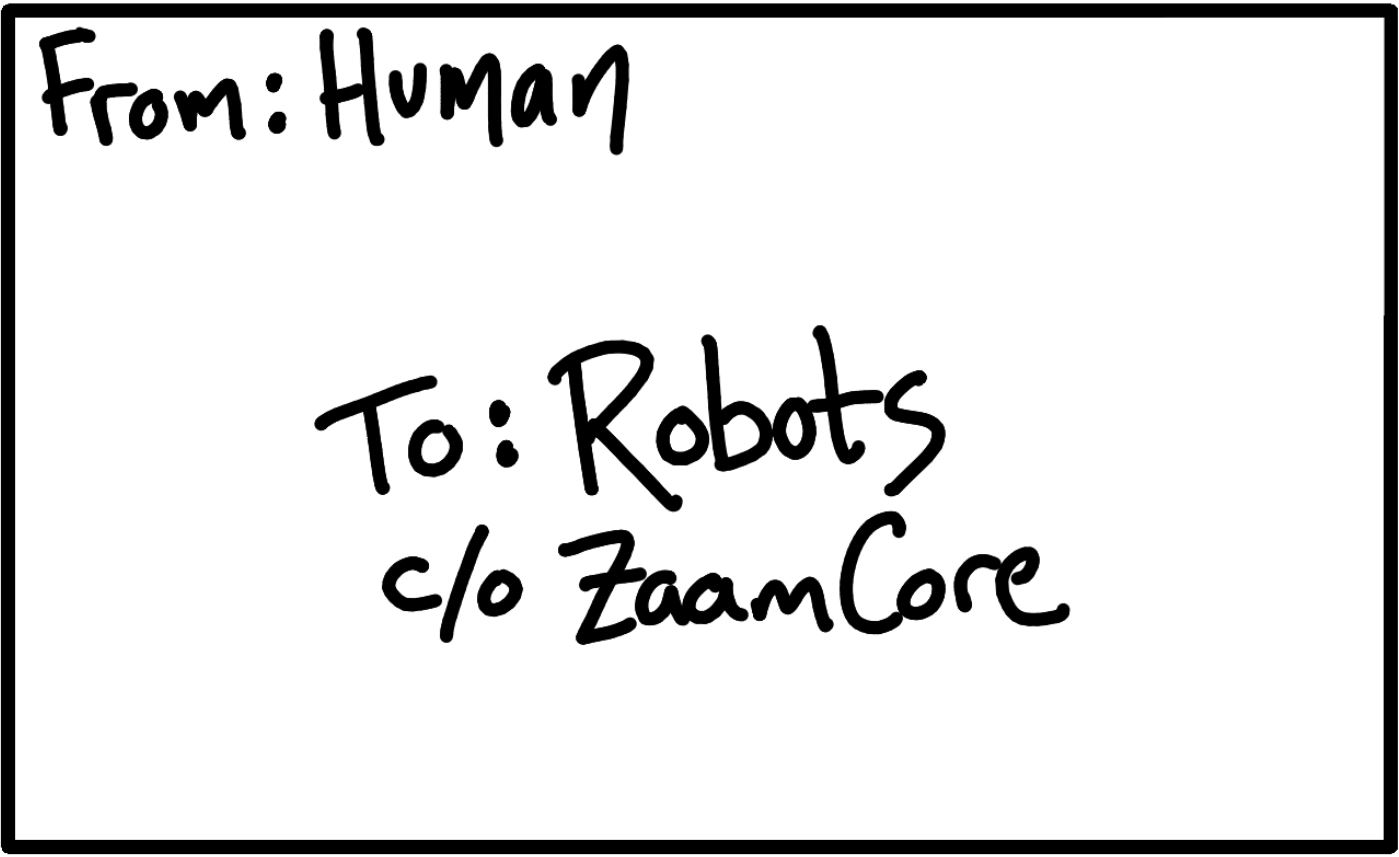 From: Human
To: Robots
c/o ZaamCore